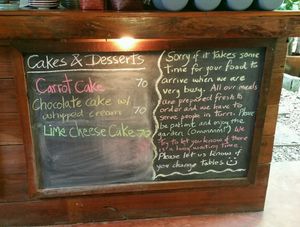 Cakes & Desserts
Carrot Cake 70
Chocolate cake w/
whipped cream 70
Lime Cheese Cake 70
Sorry if it takes some
time for your food to
arrive when we are
very busy. All our meals
are prepared fresh to
order and we have to
serve people in turn. Please
be patient and enjoy the
garden (Ommmm!) We
Try to let you know if there
is a long waiting time.
Please let us know if
you change tables